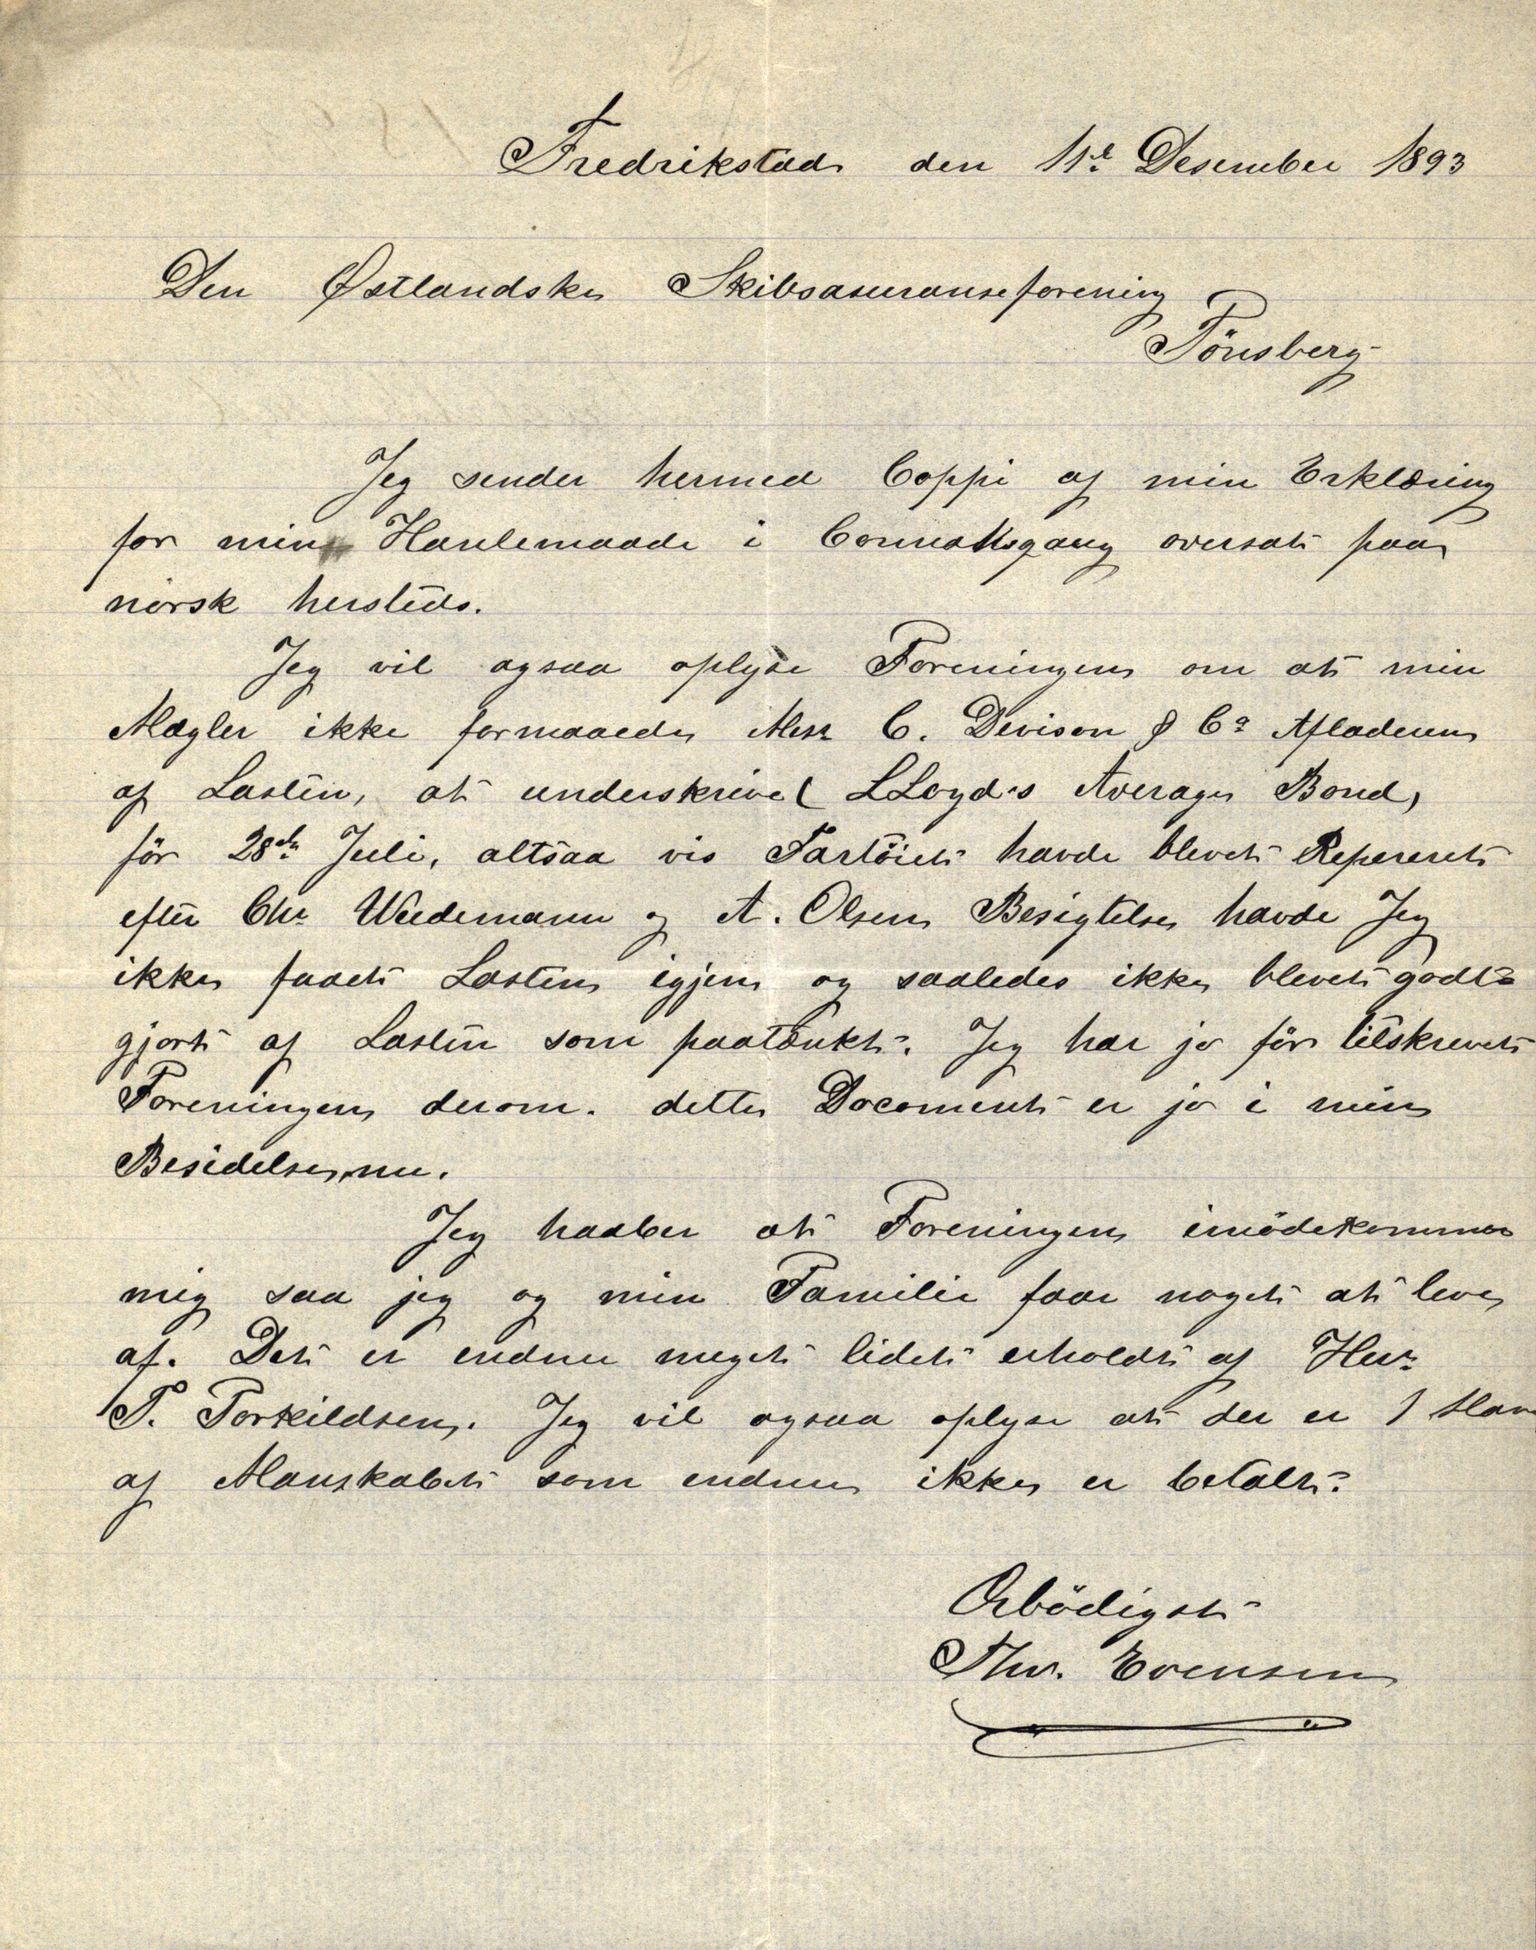 Fredrikstad den 11te Desember 1893
Den Østlandske Skibsasuranseforening
Tönsberg
Jeg sender hermed Coppi af min Erklæring
for min Hanlemaade i oversat paa
norsk hersteds.
Jeg vil ogsaa oplyse Foreningen om at min
Mægler ikke formaaede Mess C. Devison & Co Afladeren
af Lasten, at underskrive LLoyd's Average Bond,
för 28de Juli, altsaa vis Fartöiet havde blevet Reperert
efter Chr Wedemann og A. Olsens Besigtelse havde Jeg
ikke faaet Lasten igjen og saaledes ikke blevet godt=
gjort af Lasten som paatænkt. Jeg har jo för tilskrevet
Foreningen derom. dette Docoment er jo i min
Besidelse nu.
Jeg haaber at Foreningen imödekommer
mig saa jeg og min Familie faar noget at leve
af. Det er endnu meget lidet erholdt af Herr
T. Torkildsen. Jeg vil ogsaa oplyse at der er 1 Man
af Manskabet som endnu ikke er betalt.
Örbödigst
Thv. Evensen